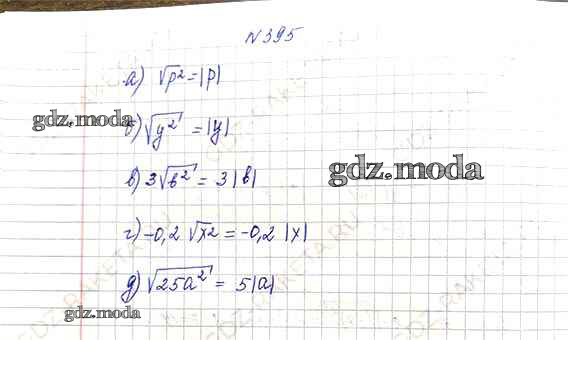 N 395
а) √p² = |p|
б) √y² = |y|
gdz.moda
gdz.moda
в) 3√b² = 3|b|
г) -0,2 √x² = -0,2 |x|
д) √25a² = 5|a|
gdz.moda